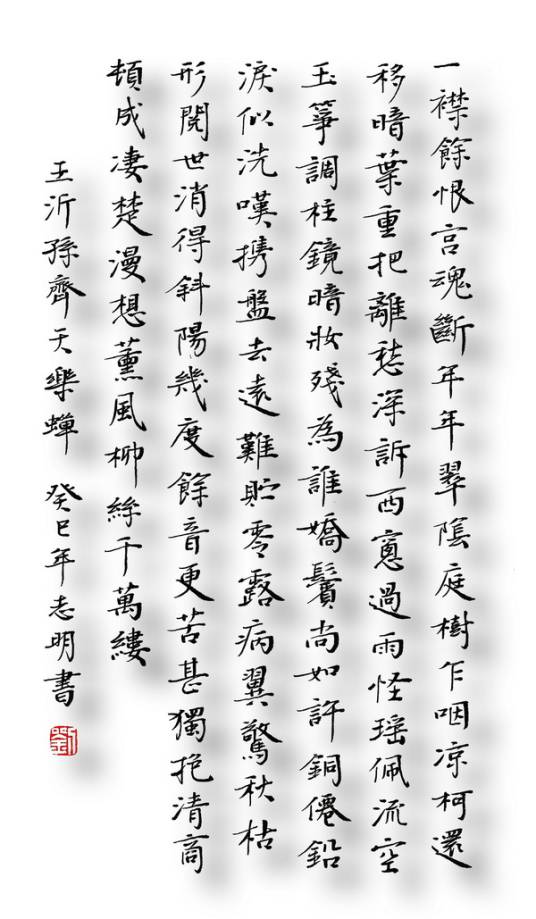 一襟餘恨宮魂斷年年翠陰庭樹乍咽凉柯還
移暗葉重把離愁深訴西窻過雨怪瑶佩流空
玉箏調柱鏡暗妝殘為誰嬌鬢尚如許銅僊鉛
淚似洗嘆携盤去遠難貯零露病翼驚秋枯
形閱世消得斜陽幾度餘音更苦甚獨抱清商
頓成凄楚漫想薰風柳絲千萬縷
王沂孫齊天樂蟬 癸巳年志明書
劉